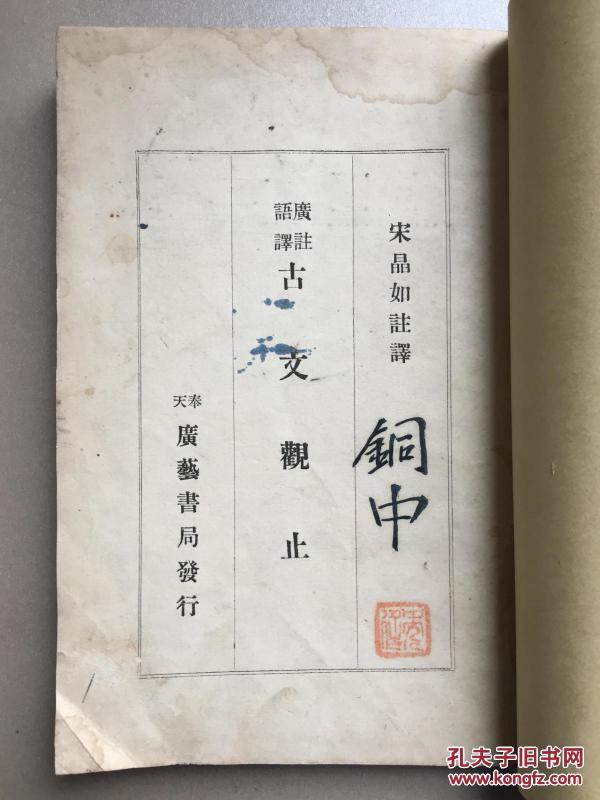 宋晶如註譯
銅中
廣註
語譯
古文觀止
奉天
廣藝書局發行
孔夫子旧书网
www.kongfz.com